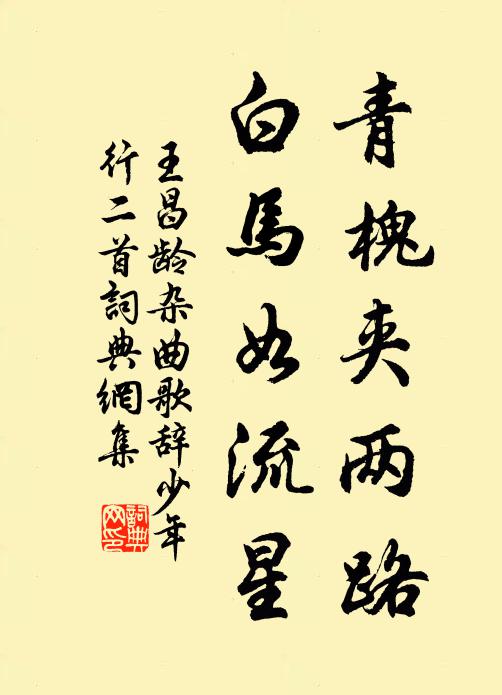 青槐夹两路
白馬如流星
王昌龄杂曲歌辞少年
行二首詞典網集
詞典
网印